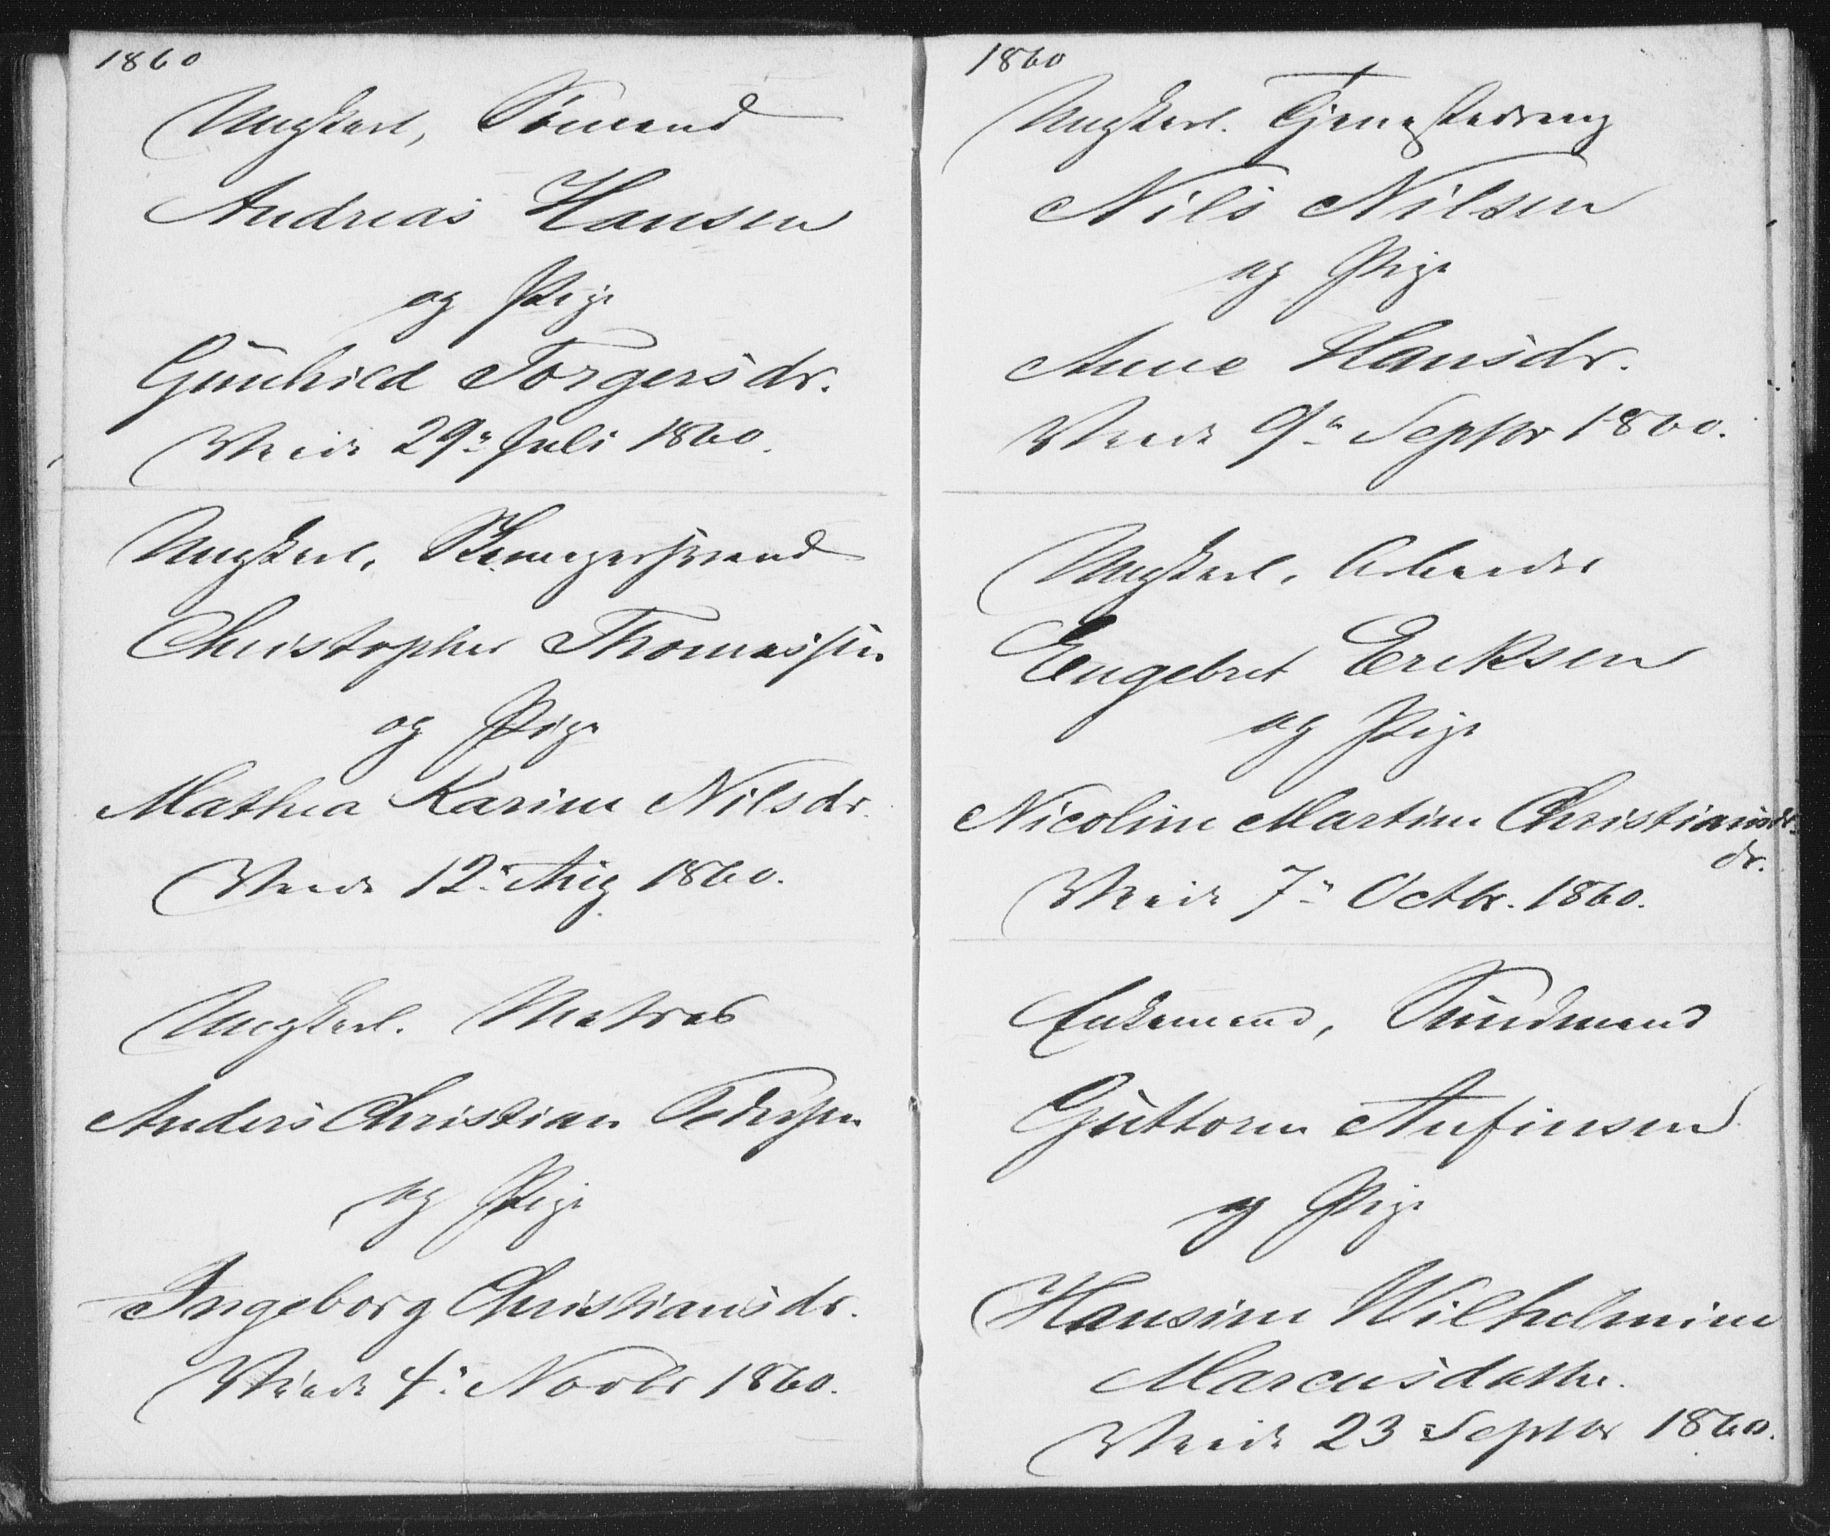 1860
Ungkarl, Sømand
Andreas Hansen
og Pige
Gunhild Torgersdr.
Viede 29de Juli 1860.
Ungkarl,
Christopher Thomassen
og Pige
Mathea Karine Nilsdr.
Viede 12. Aug 1860.
Ungkarl. Matros
Anders Christian Pedersen
og Pige
Ingeborg Christiansdr.
Viede 4. Novbr 1860.
1860
Ungkarl. Tjenestedreng
Nils Nilsen
og Pige
Anne Hansdr.
Viede 9de Septbr 1860.
Ungkarl, Arbeider
Engebret Eriksen
og Pige
Nicoline Martine Christiansdr.
dr.
Viede 7de Octbr. 1860.
Enkemand,
Guttorm Anfinsen
og Pige
Hansine Wilhelmine
Marcusdatter.
Viede 23 Septbr 1860.